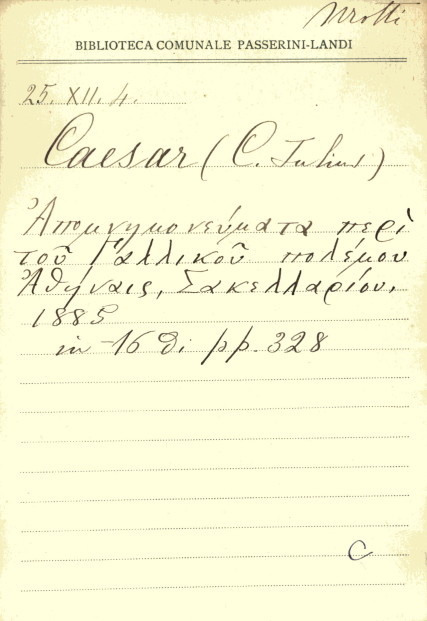 BIBLIOTECA COMUNALE PASSERINI-LANDI
25. XII. 4.
Caesar (C. Julius)
Ἀπομνημονεύματα περὶ
τοῦ Γαλλικοῦ πολέμου
Ἀθήναις, Σακελλαρίου,
1885
in-16 di pp. 328
C